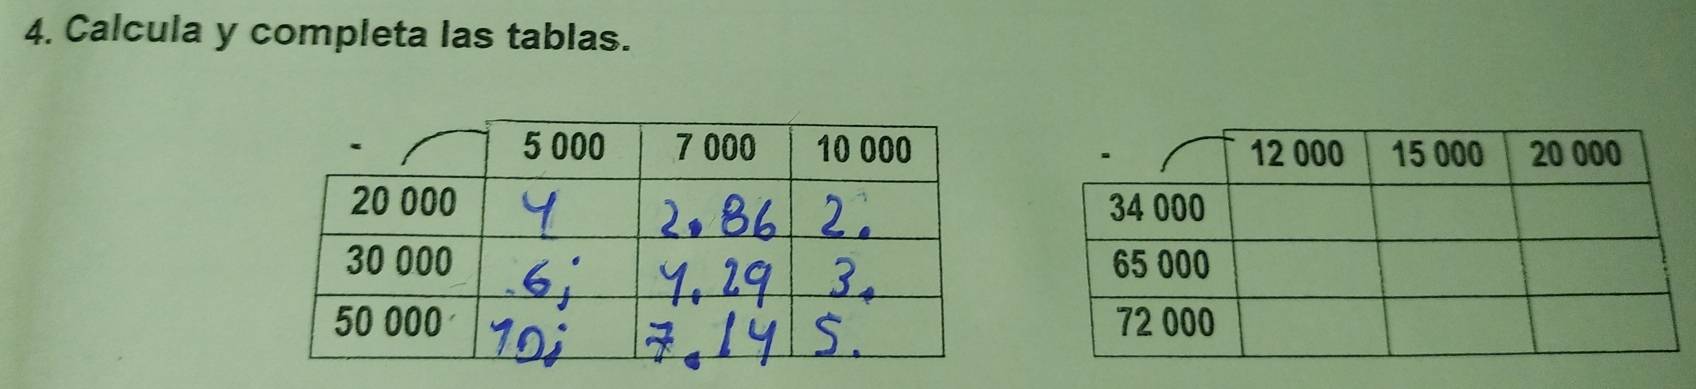 4. Calcula y completa las tablas.
- 5 000 7 000 10 000
20 000 4 2.86 2.
30 000 .6; 4.29 3.
50 000 10; 7.14 5.
- 12 000 15 000 20 000
34 000
65 000
72 000